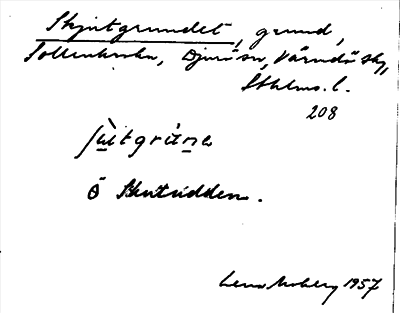 Skjutgrundet, grund,
Sollenkroka, Djurö sn, Värmdö skg,
Sthlms. l.
208
ʃùtgrùne
Ö Skutudden.
Lena Moberg 1957